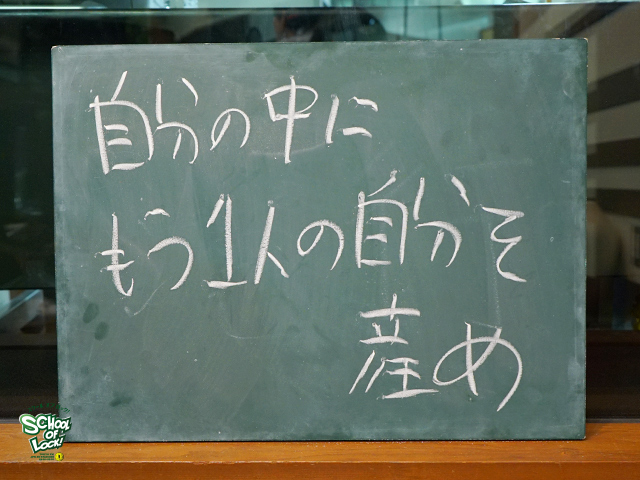 自分の中に
もう1人の自分そ
産め
SCHOOL
OF
LOCK!